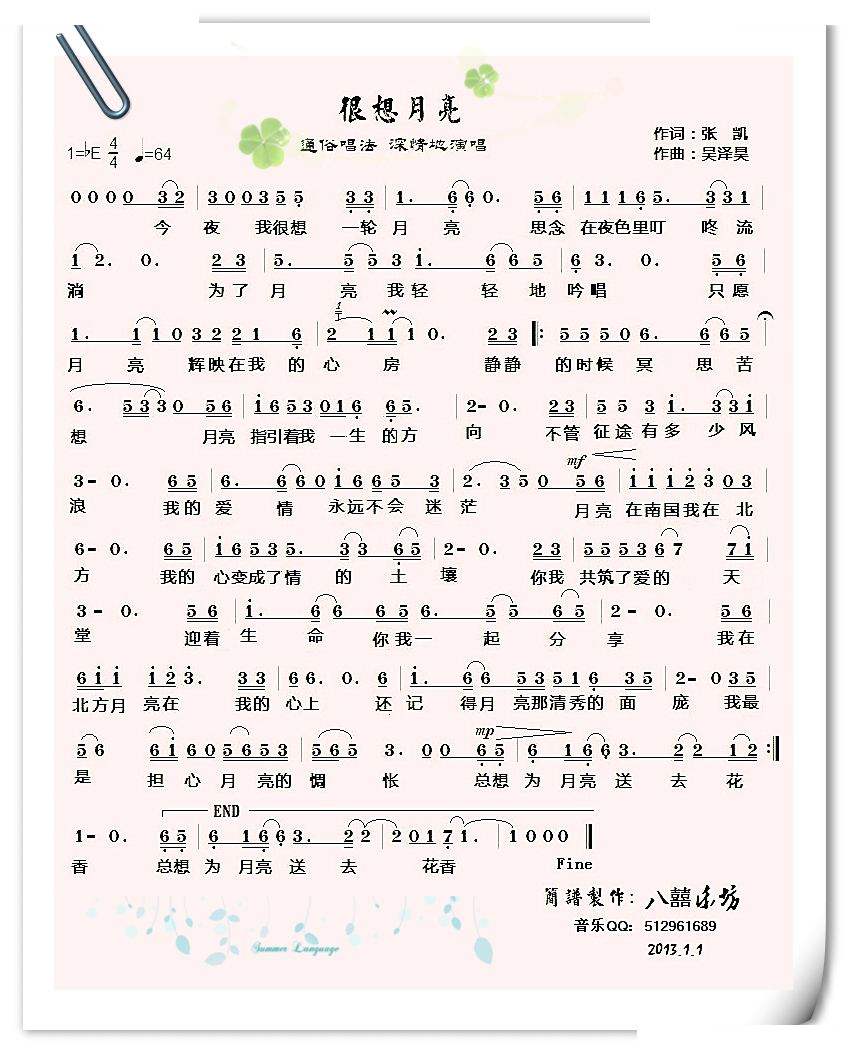 很想月亮
作词：张 凯
1=♭E 4/4 ♩=64
通俗唱法 深情地演唱
作曲：吴泽昊
0 0 0 0 3 2 | 3 0 0 0 3 5 5 3 3 | 1. 6 6 0. 5 6 | 1 1 1 6 5. 3 3 1 |
今 夜 我很想 一轮 月 亮 思念 在夜色里叮 咚 流
1 2. 0. 2 3 | 5. 5 5 3 1. 6 6 5 | 6 3. 0. 5 6 |
淌 为了 月 亮 我轻 轻 地 吟唱 只愿
1. 1 1 0 3 2 2 1 6 | 2 1 1 1 0. 2 3 |: 5 5 5 0 6. 6 6 5 |
月 亮 辉映在我 的 心 房 静静 的时候 冥 思 苦
6. 5 3 3 0 5 6 | 1 6 5 3 0 1 6 6 5. | 2 - 0. 2 3 | 5 5 3 3 1. 3 3 1 |
想 月亮 指引着我 一生 的方 向 不管 征途 有多 少风
mf
3 - 0. 6 5 | 6. 6 6 0 1 6 6 5 3 | 2. 3 5 0 5 6 | 1 1 1 2 3 0 3 |
浪 我的 爱 情 永远不会 迷 茫 月亮 在南国我在 北
6 - 0. 6 5 | 1 6 5 3 5. 3 3 6 5 | 2 - 0. 2 3 | 5 5 5 3 6 7 7 1 |
方 我的 心变成了情 的 土 壤 你我 共筑了爱的 天
3 - 0. 5 6 | 1. 6 6 6 5 6. 5 5 6 5 | 2 - 0. 5 6 |
堂 迎着 生 命 你我一 起 分 享 我在
6 1 1 1 2 3. 3 3 | 6 6. 0. 6 | 1. 6 6 5 3 5 1 6 3 5 | 2 - 0 3 5 |
北方月 亮在 我的 心上 还 记 得月 亮那清秀的 面 庞 我最
mp
5 6 6 1 6 0 5 6 5 3 | 5 6 5 3. 0 0 6 5 | 6 1 6 6 3. 2 2 1 2 :|
是 担 心 月 亮的 惆 怅 总想 为 月亮 送 去 花
END
1 - 0. 6 5 | 6 1 6 6 3. 2 2 | 2 0 1 7 1. | 1 0 0 0 |
香 总想 为 月亮 送 去 花香 Fine
簡譜製作：八囍乐坊
音乐QQ：512961689
2013.1.1
Summer Language